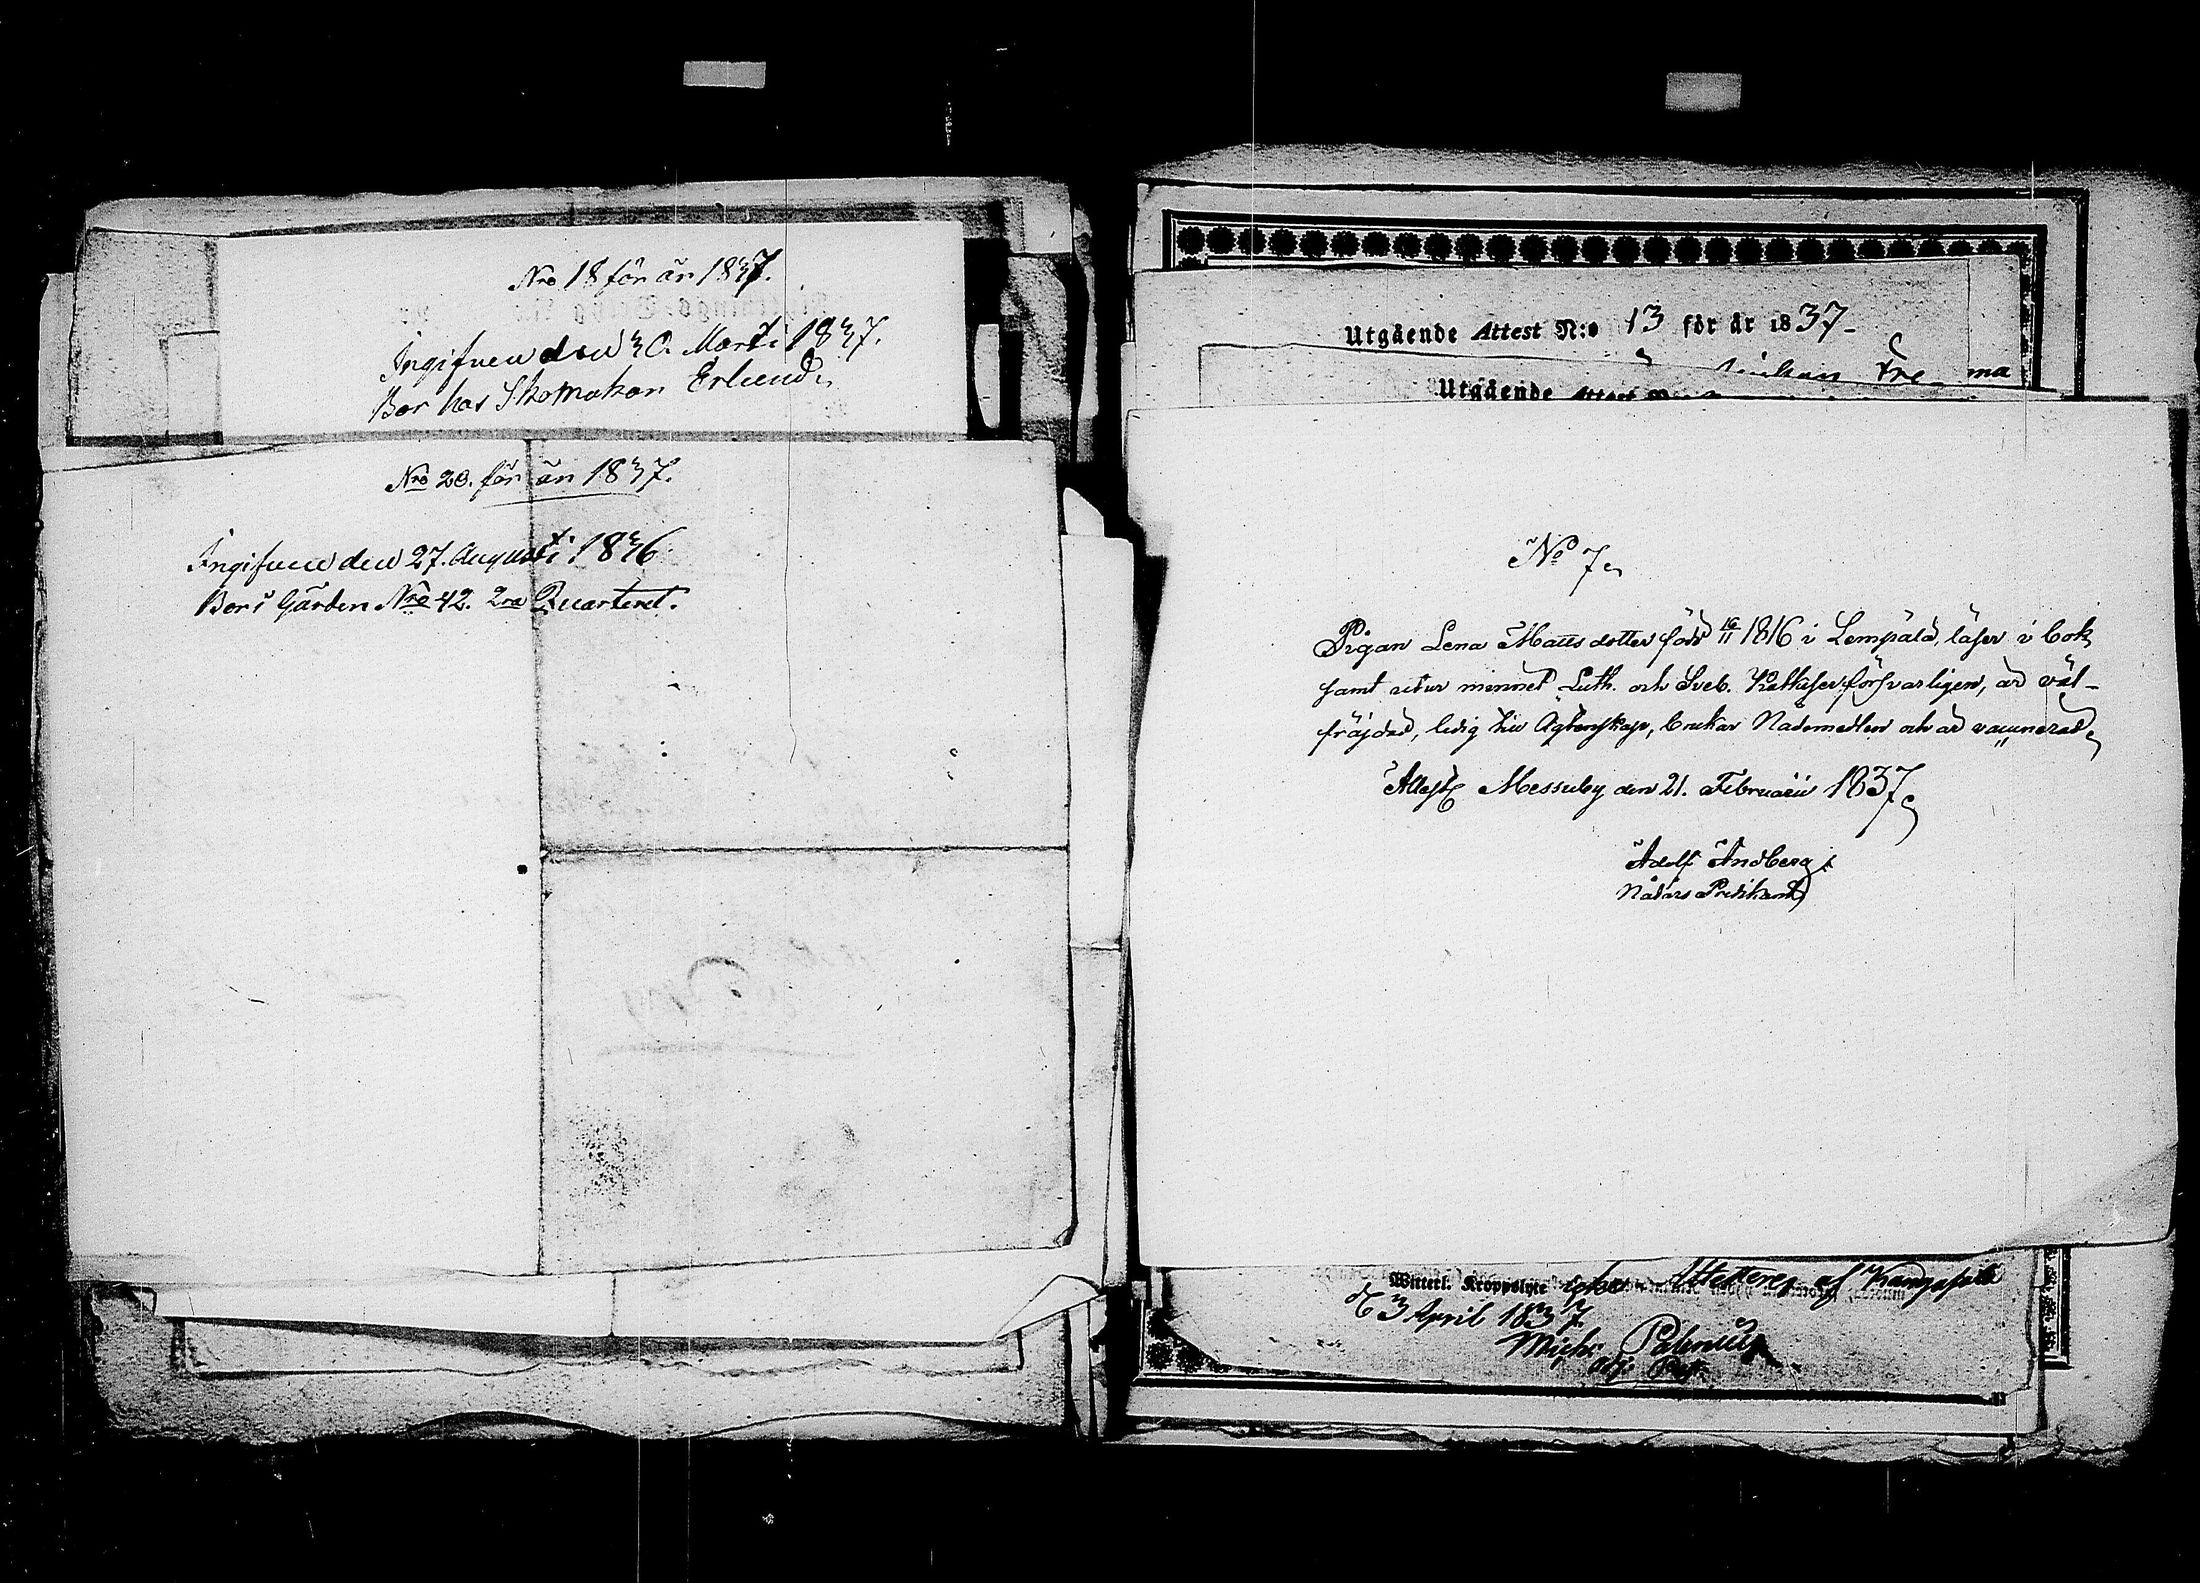 Nro 18 för år 1837.
Ingifven den 30. Martii 1837.
Bor hos Skomakar Erlund.
Nro 20. för år 1837.
Ingifven den 27. Augusti 1836
Bor i Gården Nro 42. 2ra Quarteret.
Utgående Attest N:o 13 för år 1837-
Utgående Attest
No 7.
Pigan Lena Mattsdotter född 16/11 1816 i Lempälä, läser i bok
samt utur minnet Luth. och Sveb. Katkeser försvarligen, är väl-
fräjdad, ledig till Ägtenskap, brukar Nådemedlen och är vaccinerad.
Attest. Messuby den 21. Februarii 1837.
Adolf Andberg.
Nådårs Predikant
Witterl. Kroppslyte af Kangasala
d. 3 April 1837
Mich:
adj: Past.